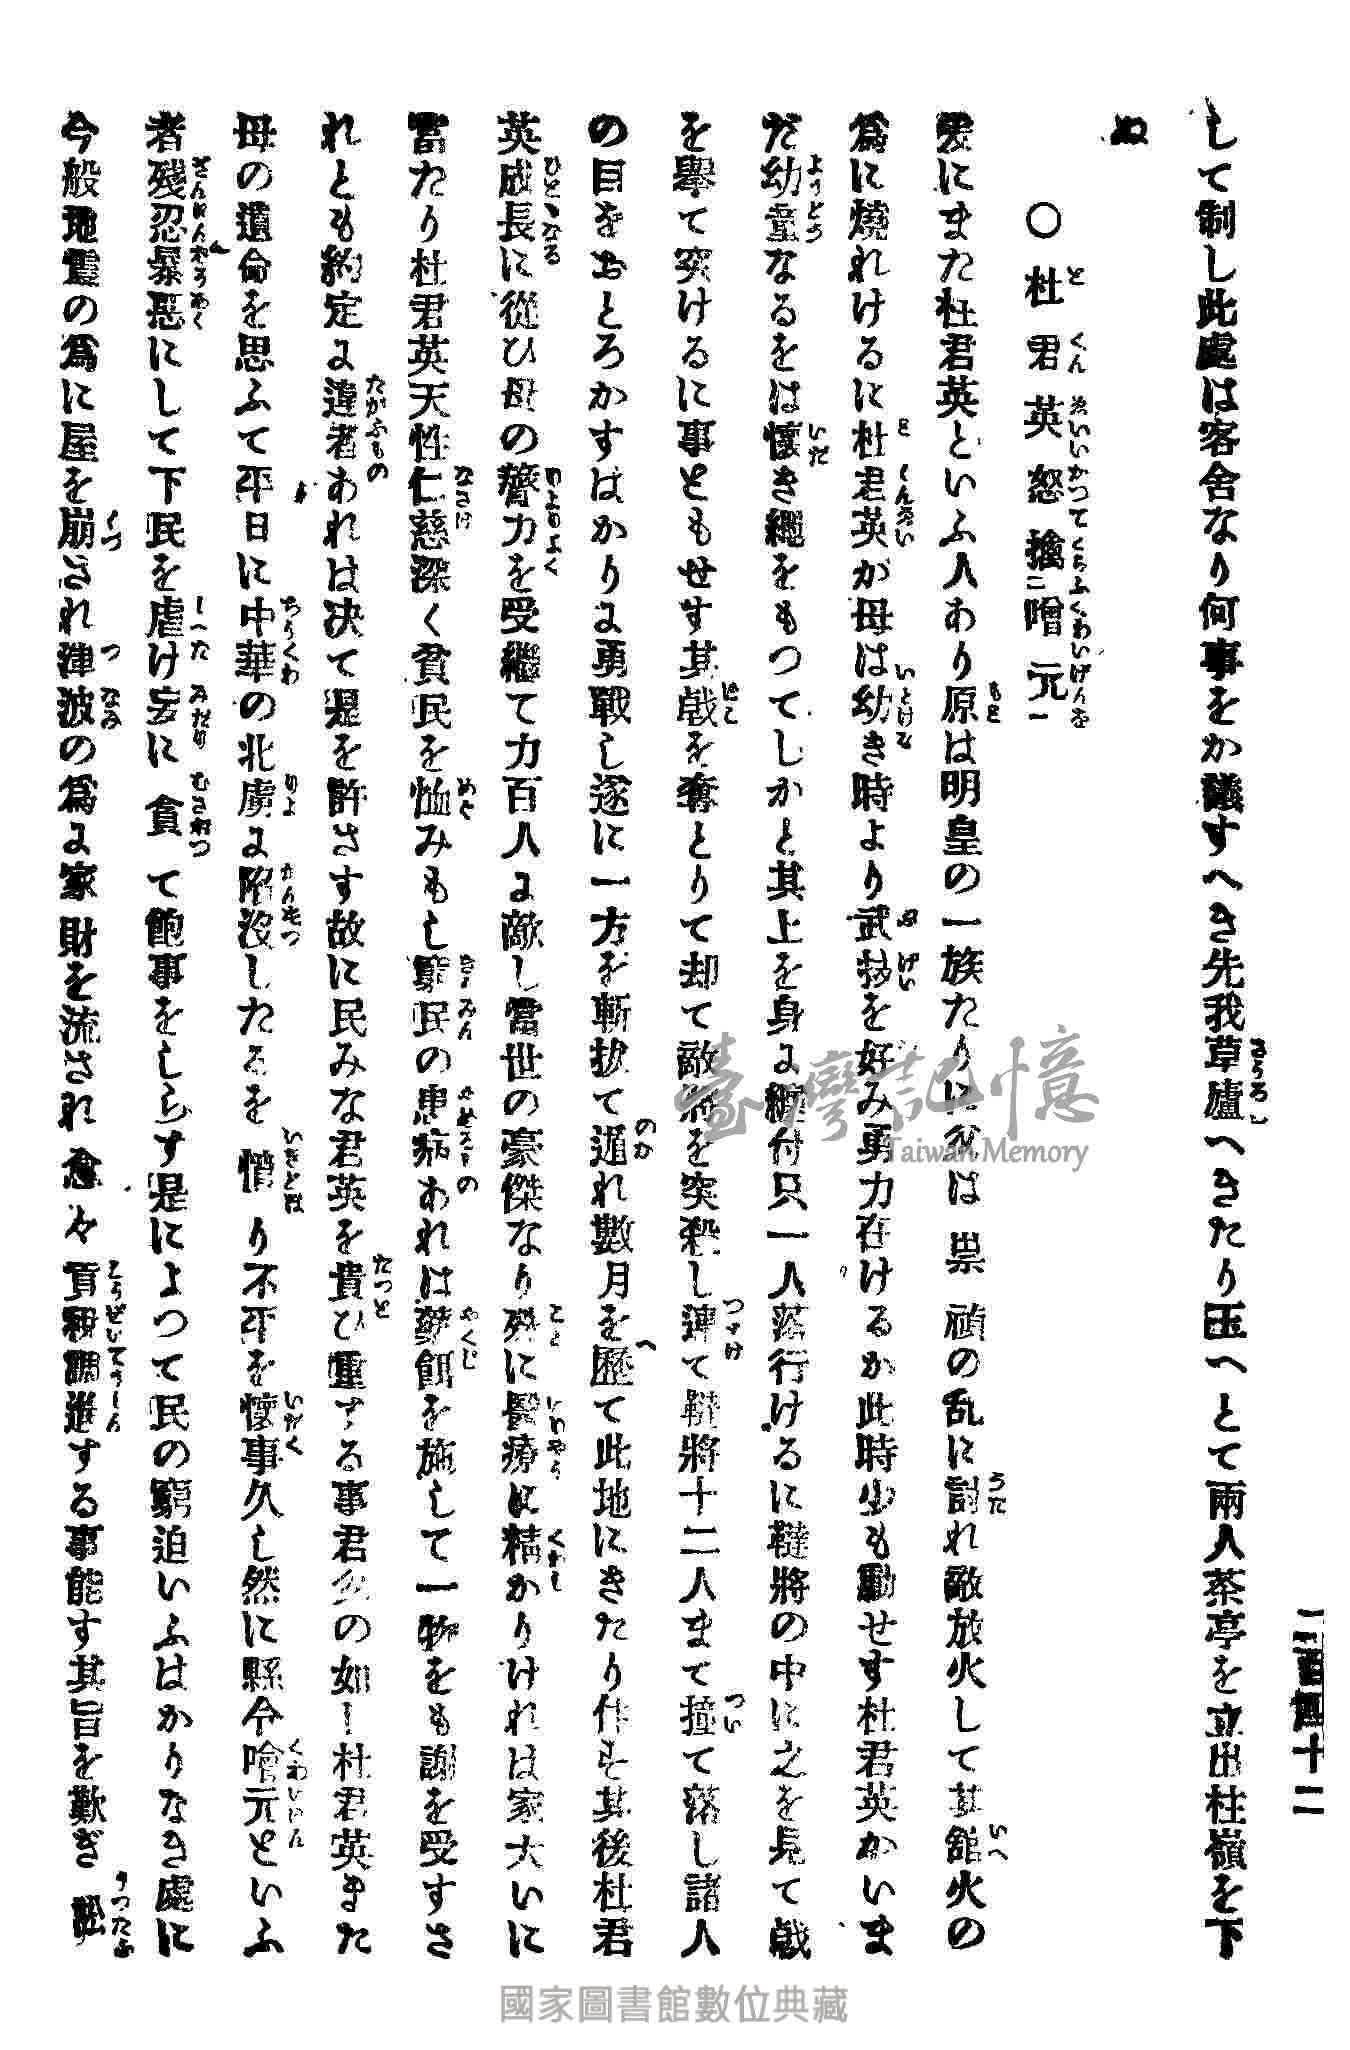 二百四十二
して制し此處は客舍なり何事をか議すへき先我草廬へきたり玉へとて兩人茶亭を立出杜嶺を下
ぬ
○杜君英怒擒二噲元一
爰にまた杜君英といふ人あり原は明皇の一族たりに父は禎の乱に討れ敵放火して其舘火の
爲に燒れけるに杜君英が母は幼き時より武技を好み勇力在けるか此時少も動せす杜君英かいま
だ幼童なるをは懷き繩をもつてしかと其上を身に纏付只一人落行けるに韃將の中に之を見て戟
を擧て突けるに事ともせす其戟を奪とりて却て敵將を突殺し連て韃將十二人まて撞て落し諸人
の目をおとろかすはかりに勇戰し遂に一方を斬拔て遁れ數月を歷て此地にきたり住す其後杜君
英成長に從ひ母の膂力を受繼て力百人に敵し當世の豪傑なり殊に醫療に精かりけれは家大いに
富たり杜君英天性仁慈深く貧民を恤みもし窮民の患病あれは藥餌を施して一物をも謝を受すさ
れとも約定に違者あれは决て是を許さす故に民みな君英を貴ひ重する事君父の如し杜君英また
母の遺命を思ふて平日に中華の北虜に陷沒したるを憤り不平を懷事久し然に縣令噲元といふ
者殘忍暴惡にして下民を虐け妄に貪て飽事をしらす是によつて民の窮迫いふはかりなき處に
今般地震の爲に屋を崩され津波の爲に家財を流され愈々貢税調進する事能す其旨を歎ぎ訟
臺灣記憶
Taiwan Memory
國家圖書館數位典藏